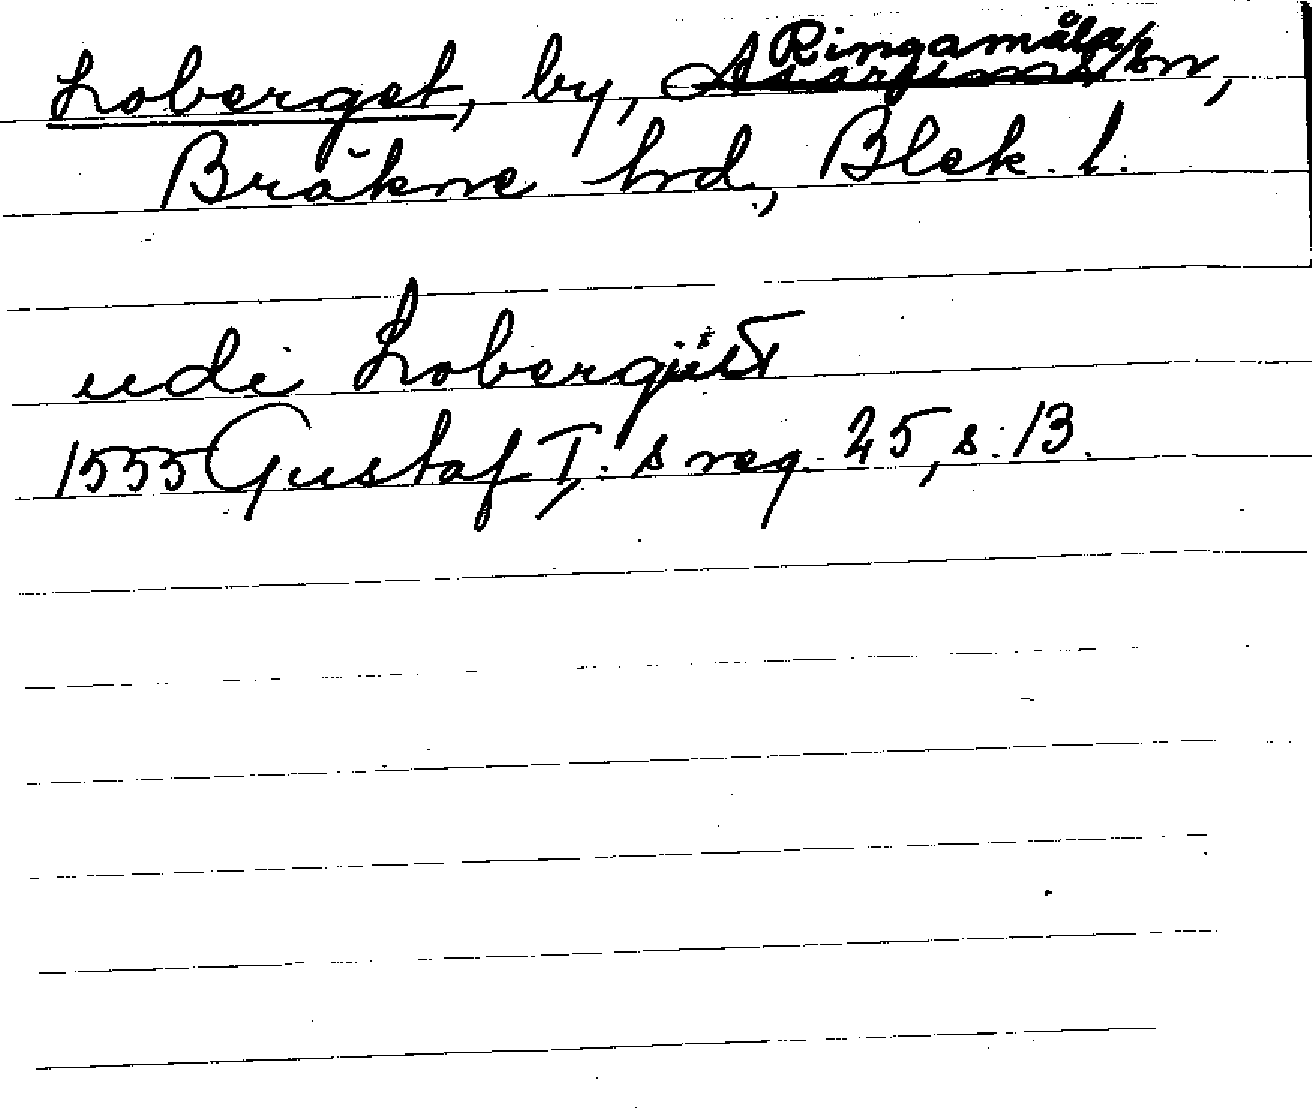 Loberget, by, Ringamåla sn,
Bräkne hrd, Blek. l.
udi Lobergitt
1555 Gustaf I:s reg. 25, s. 13.